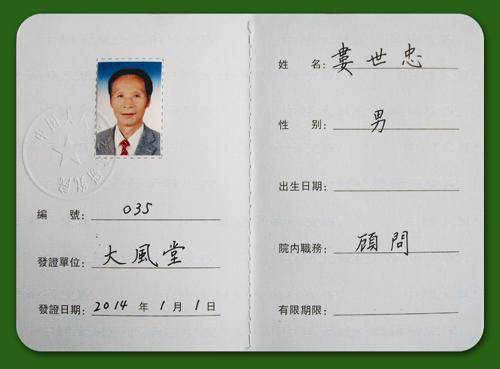 編 號: 035
發證單位: 大風堂
發證日期: 2014 年 1 月 1 日
姓 名: 婁世忠
性 别: 男
出生日期:
院内職務: 顧問
有限期限: